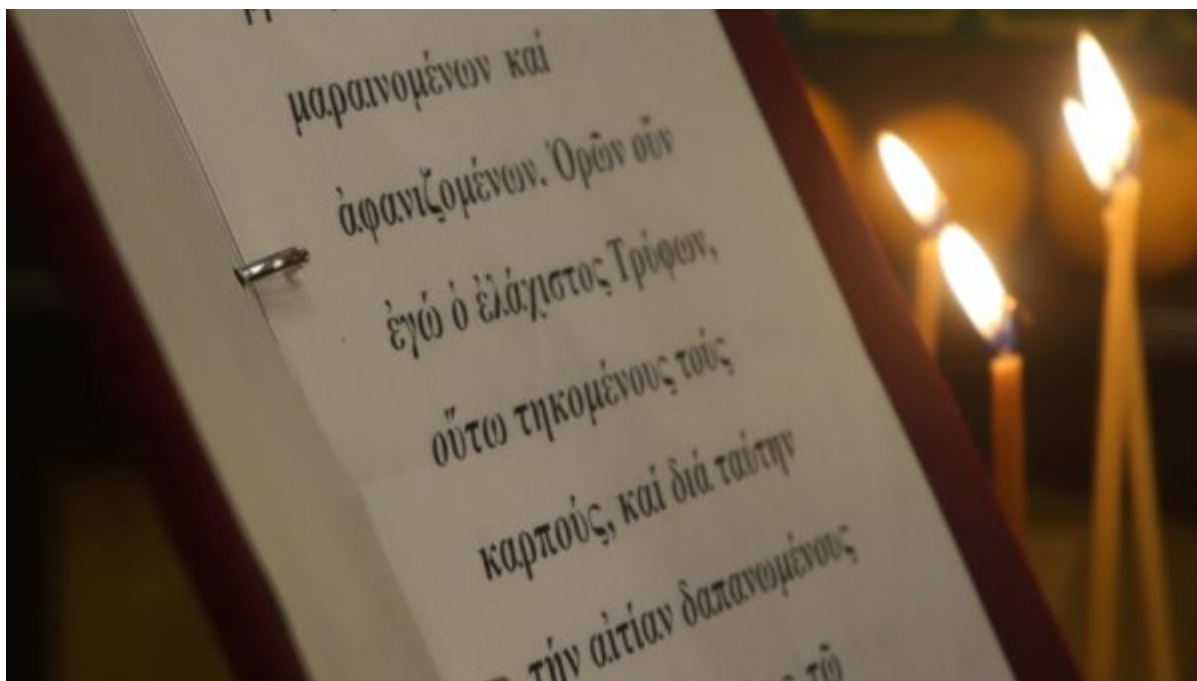 μαραινομένων καί
ἀφανιζομένων. Ὁρῶν οὖν
ἐγώ ὁ ἐλάχιστος Τρύφων,
οὕτω τηκομένους τούς
καρπούς, καί διά ταύτην
τήν αἰτίαν δαπανωμένους
τῷ